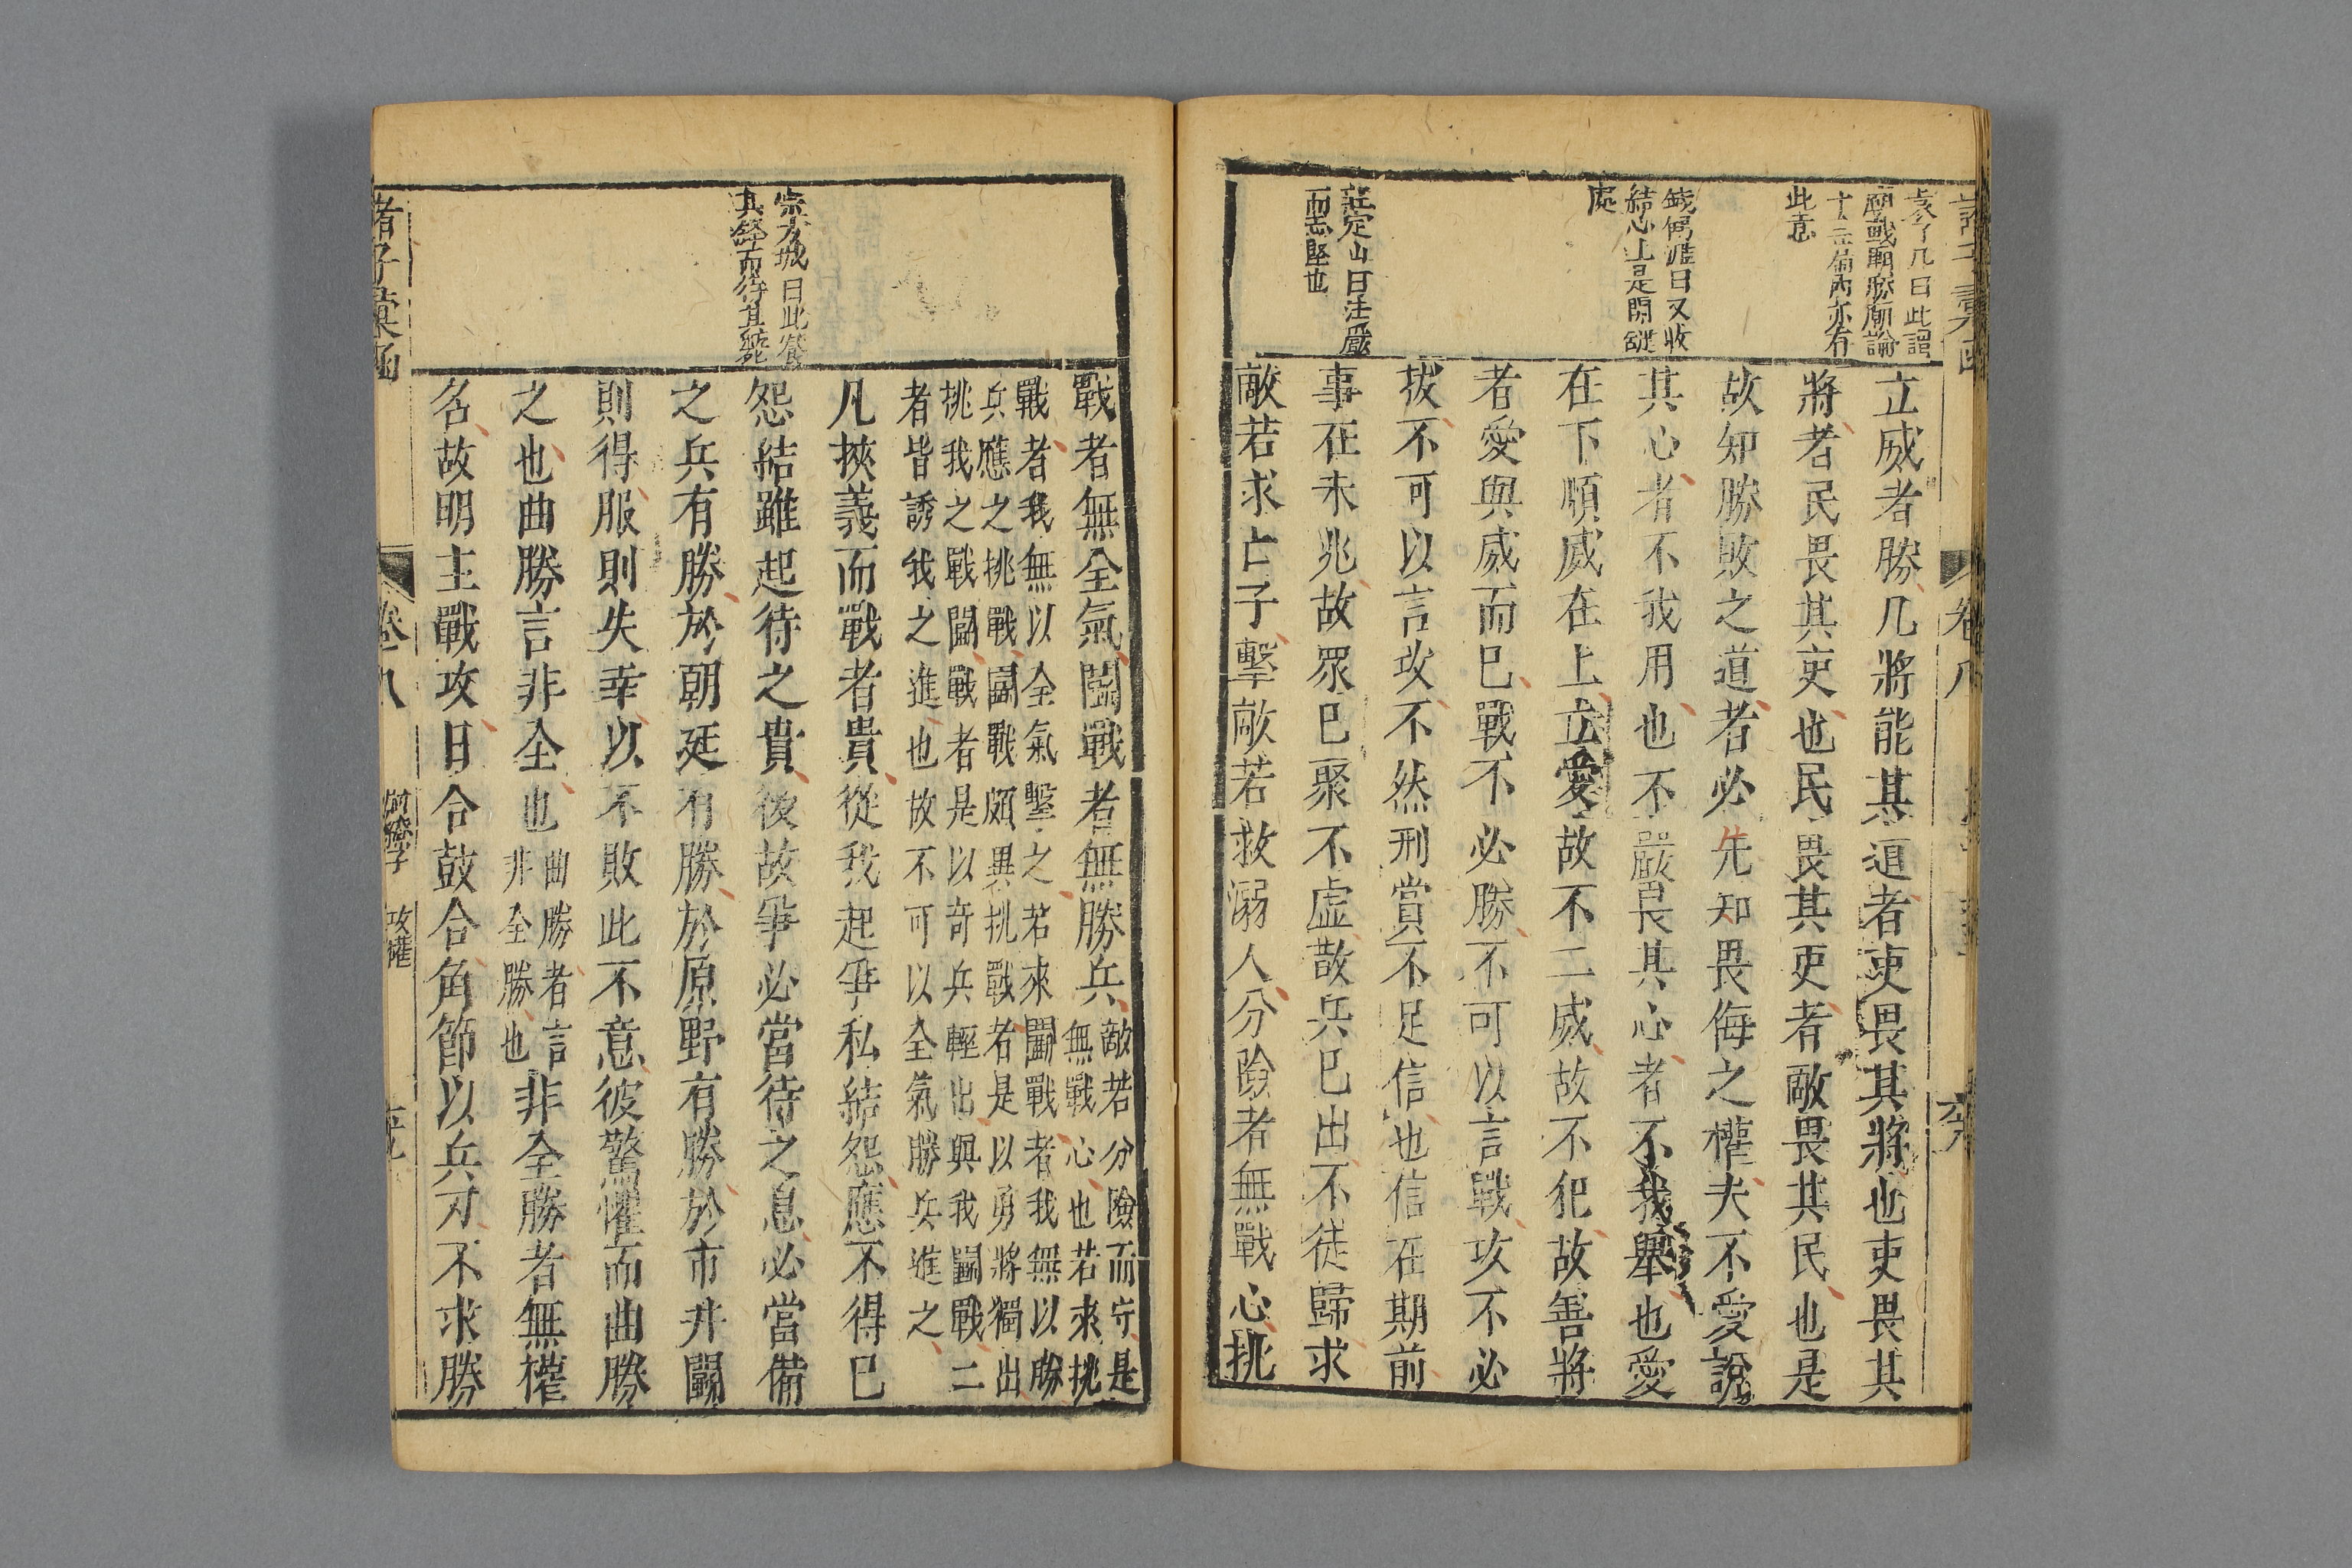 諸子彙函
卷八
六
袁了凡曰此謂
廟戰廟勝廟論
此意
錢鶴灘曰又收
結心上是關鍵
處
莊定山曰法嚴
而志堅也
立威者勝凡將能其道者吏畏其將也吏畏其
將者民畏其吏也民畏其吏者敵畏其民也是
故知勝敗之道者必先知畏侮之權夫不愛說
其心者不我用也不嚴畏其心者不我舉也愛
在下順威在上立愛故不二威故不犯故善將
者愛與威而已戰不必勝不可以言戰攻不必
拔不可以言攻不然刑賞不足信也信在期前
事在未兆故眾已聚不虛散兵已出不徒歸求
敵若求亡子擊敵若救溺人分險者無戰心挑
宗方城曰此養
其鋒而待其斃
戰者無全氣鬬戰者無勝兵敵若分險而守是
無戰心也若來挑
戰者我無以全氣擊之若來鬬戰者我無以勝
兵應之挑戰鬬戰頗異挑戰者是以勇將獨出
挑我之戰鬬戰者是以奇兵輕出與我鬬戰二
者皆誘我之進也故不可以全氣勝兵進之
凡挾義而戰者貴從我起爭私結怨應不得已
怨結雖起待之貴後故爭必當待之息必當備
之兵有勝於朝廷有勝於原野有勝於市井鬬
則得服則失幸以不敗此不意彼驚懼而曲勝
之也曲勝言非全也曲勝者言
非全勝也非全勝者無權
名故明主戰攻日合鼓合角節以兵刃不求勝
諸子彙函
卷八
尉繚子
攻權